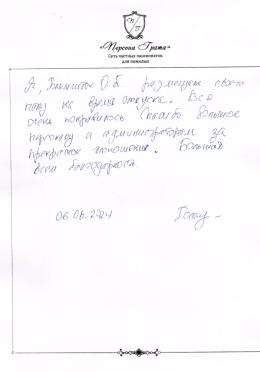 П/Г
«Персона Грата»
Сеть частных пансионатов
для пожилых
Я, О.Б. размещали свою
на время отпуска. Все
очень понравилось Спасибо большое
персоналу и администраторам за
прекрасное отношение. Большая
всем благодарность
06.06.2024